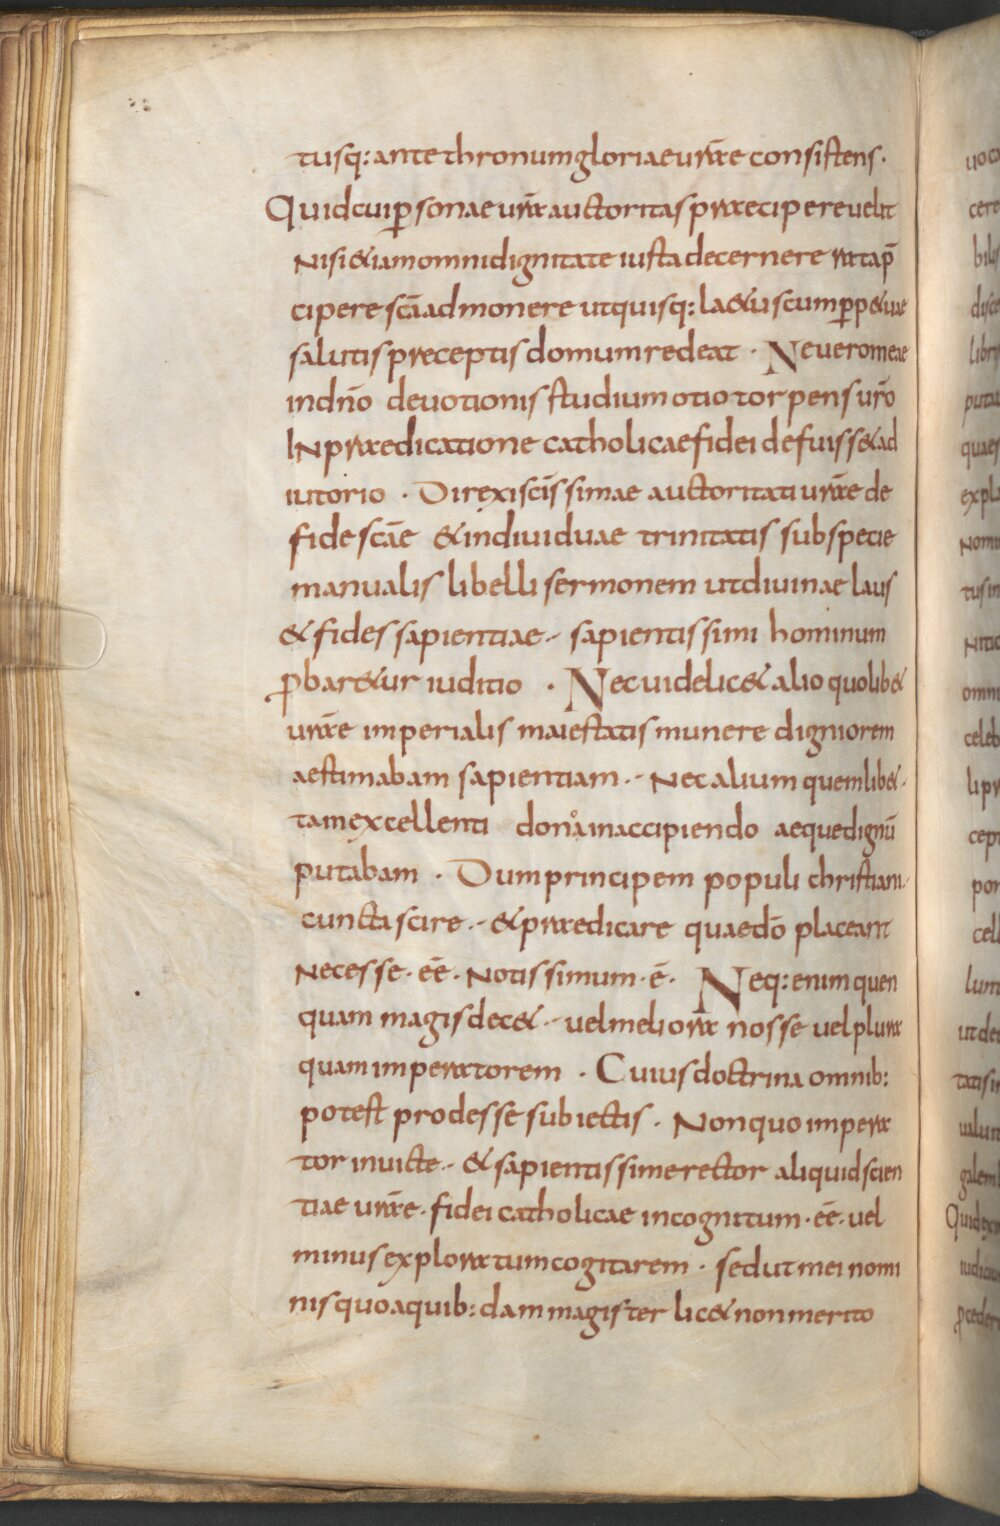 tusq: ante thronum gloriae urãe consistens.
Quid cui p̱sonae urã auctoritas praecipere uelit
Nisi & iam omni dignitate iusta decernere rata p̄
cipere scã admonere ut quisq: la&us cum p̱p&uae
salutis preceptis domum redeat · Ne uero meae
in dño deuotionis studium otio torpens urõ
IN praedicatione catholicae fidei defuisse & ad
iutorio · Direxi scĩssimae auctoritati urãe de
fide scãe & indiuiduae trinitatis sub specie
manualis libelli sermonem ut diuinae laus
& fides sapientiae·- sapientissimi hominum
ꝓbar&ur iuditio · Nec uidelic& alio quolib&
urãe imperialis maiestatis munere digniorem
aestimabam sapientiam·- Nec alium quemlib&·
tam excellenti dona in accipiendo aeque dignũ
putabam · Dum principem populi christiani·
cuncta scire·- & praedicare quae dõ placeant
Necesse · eẽ · Notissimum · ẽ · Neq: enim quen
quam magis dec&·- uel meliora nosse uel plura
quam imperatorem · Cuius doctrina omnib:
potest prodesse subiectis · Non quo impera
tor inuicte·- & sapientissime rector aliquid scien
tiae urãe · fidei catholicae incognitum · eẽ · uel
minus exploratum cogitarem · sed ut mei nomi
nis quo a quib:dam magister lic& non merito